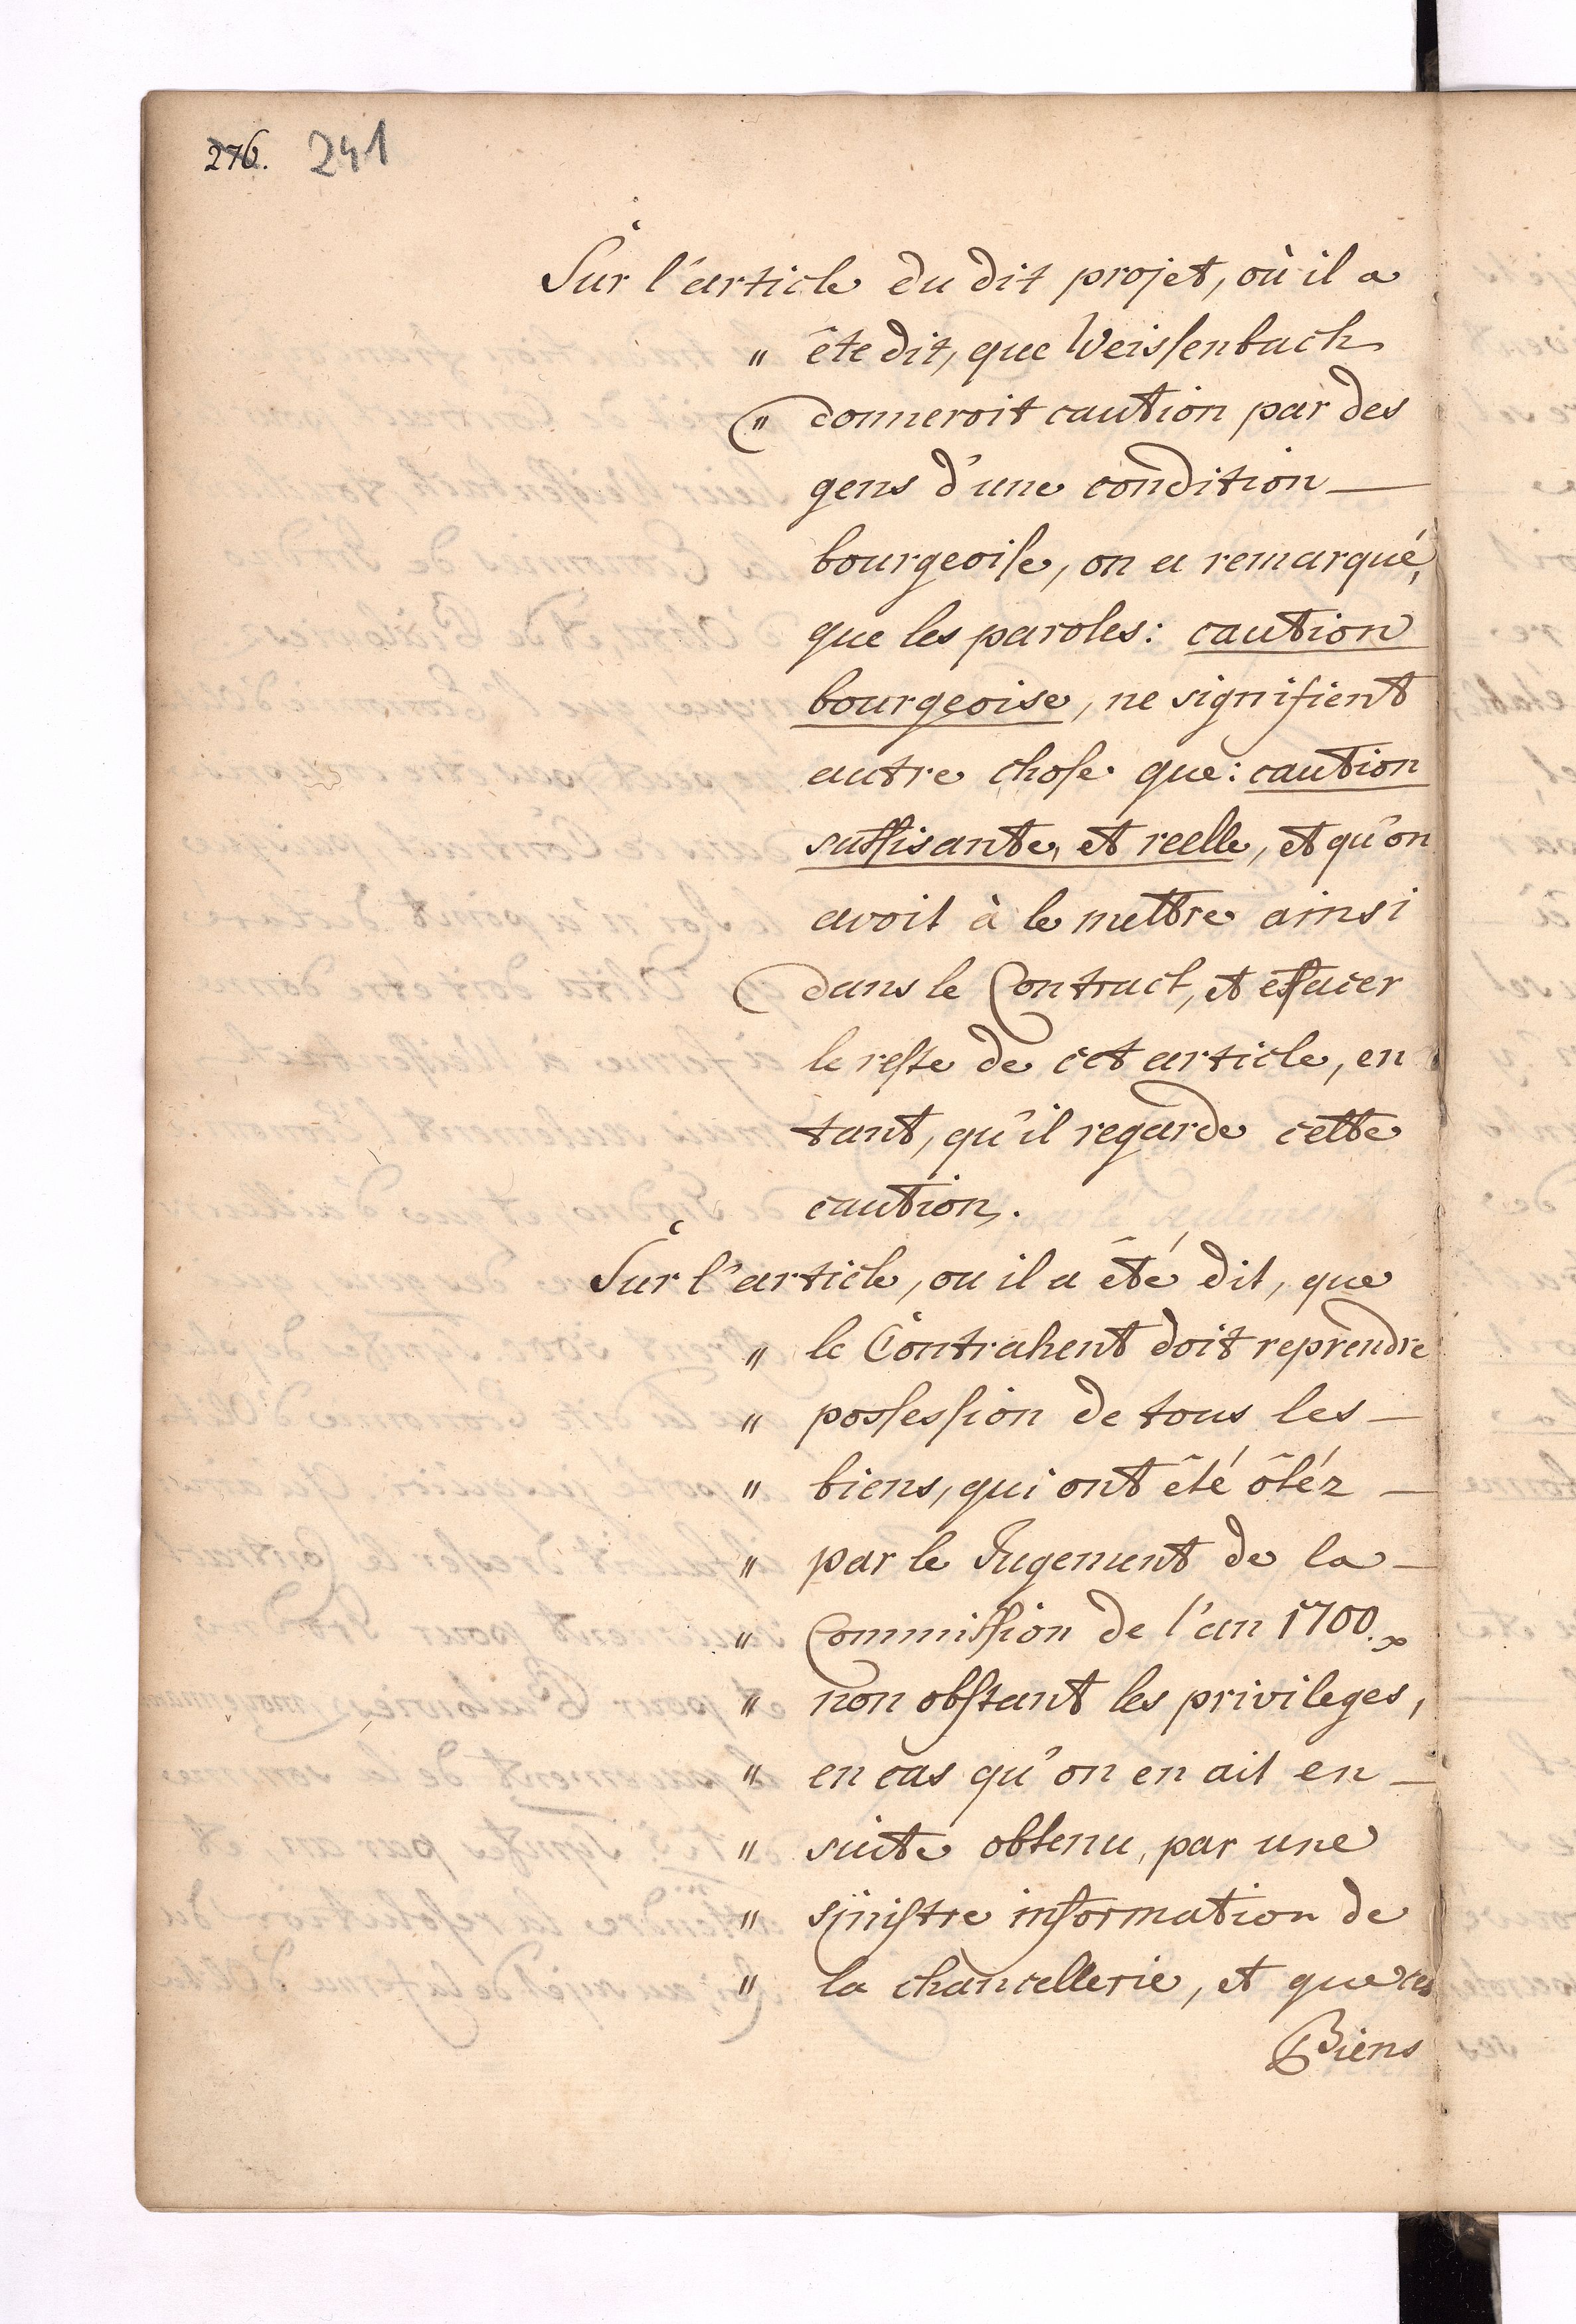 276. 241
Sur l'article du dit projet, où il a
" éte dit, que Weissenbach
" donneroit caution par des
gens d'une condition —
bourgeoise, on a remarqué,
que les paroles: caution
bourgeoise, ne signifient
autre chose que: caution
suffisante, et reelle, et qu'on
avoit à le mettre ainsi
dans le Contract, et effacer
le reste de cet article, en
tant, qu'il regarde cette
caution.
Sur l'article, ou il a été dit, que
" le Contrahent doit reprendre
" possession de tous les —
" biens, qui ont êté ôtéz —
" par le Jugement de la —
" Commission de l'an 1700.
" non obstant les privileges,
" en cas qu'on en ait en —
" suite obtenu, par une
" sinistre information de
" la chancellerie, et que ces
Biens